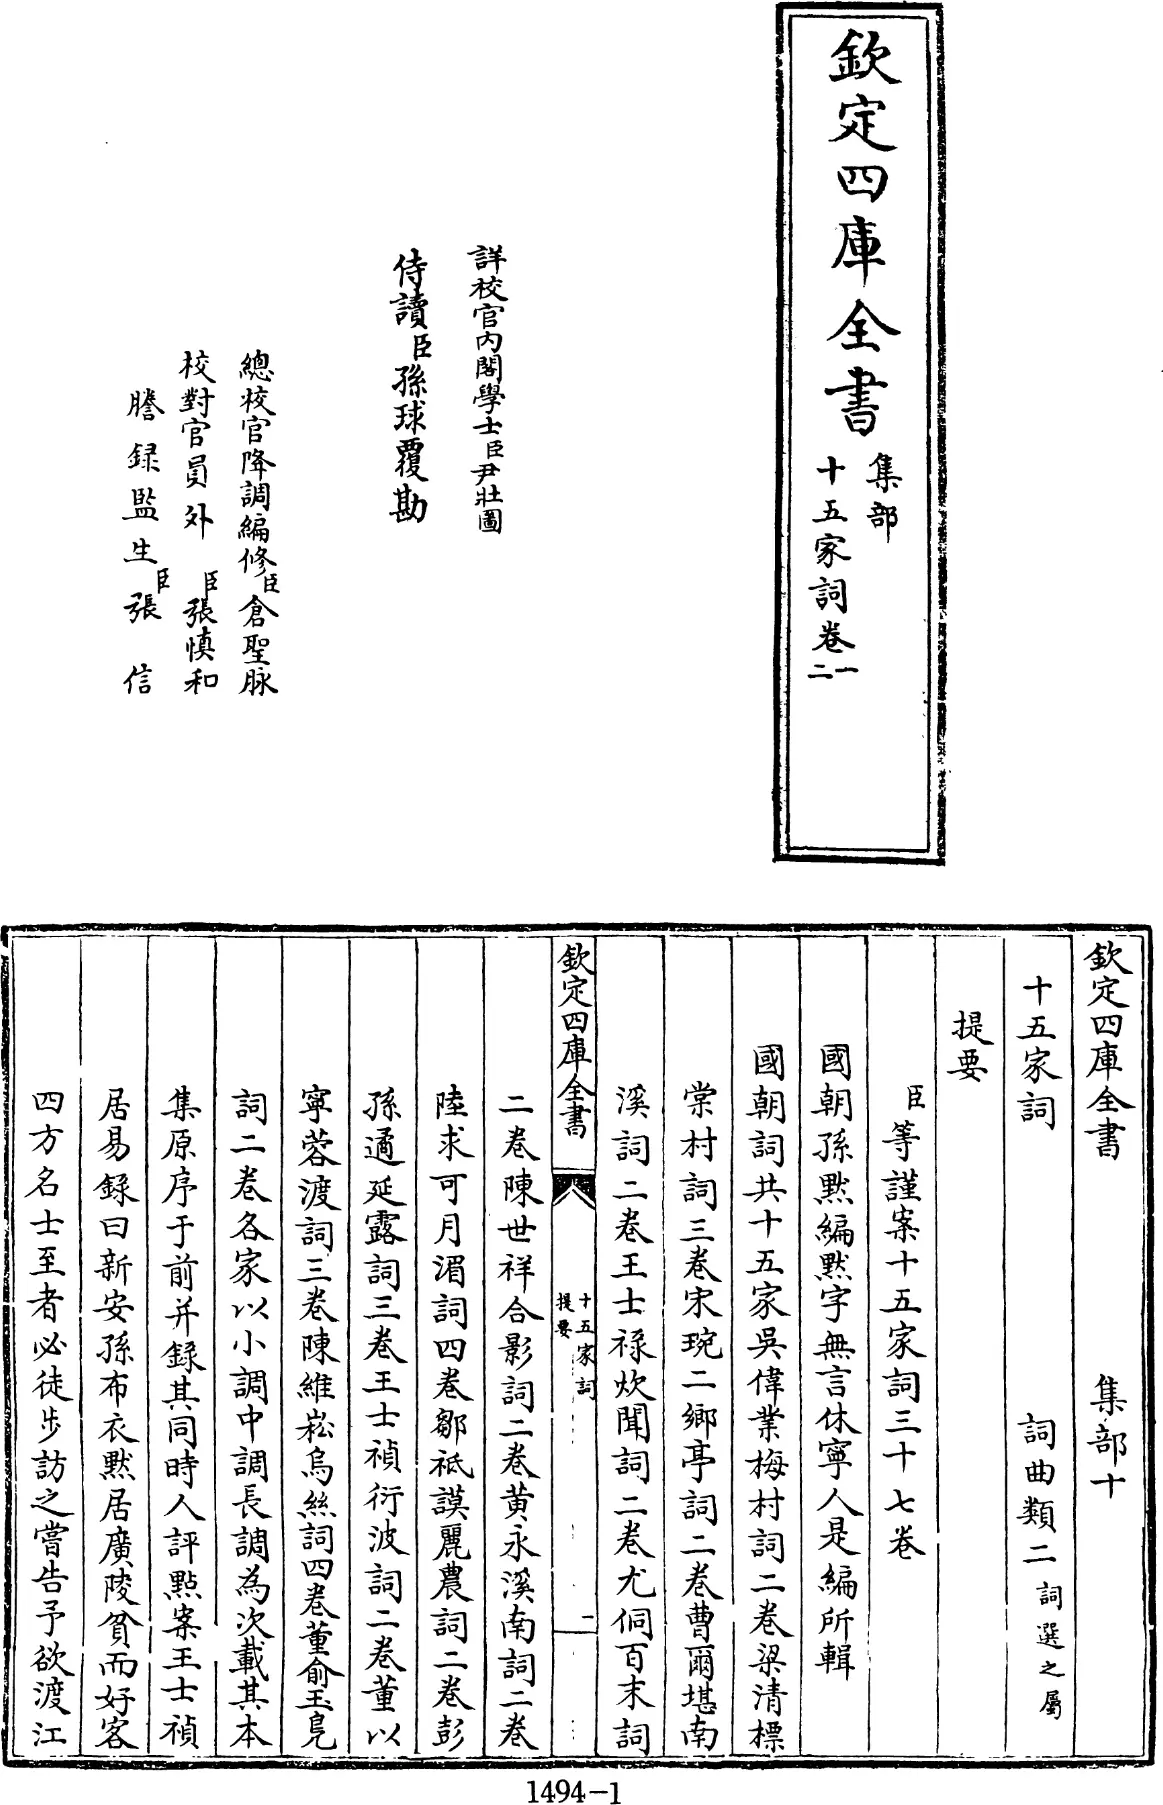 欽定四庫全書
集部
十五家詞卷一
二
詳校官內閣學士臣尹壯圖
侍讀臣孫球覆勘
總校官降調編修臣倉聖脉
校對官員外臣張慎和
謄録監生臣張信
欽定四庫全書 集部十
十五家詞 詞曲類二詞選之屬
提要
臣等謹案十五家詞三十七卷
國朝孫黙編黙字無言休寧人是編所輯
國朝詞共十五家吳偉業梅村詞二卷梁清標
棠村詞三卷宋琬二鄉亭詞二卷曹爾堪南
溪詞二卷王士祿炊聞詞二卷尤侗百末詞
欽定四庫全書
十五家詞
提要
一
二卷陳世祥含影詞二卷黄永溪南詞二卷
陸求可月湄詞四卷鄒祗謨麗農詞二卷彭
孫遹延露詞三卷王士禎衍波詞二卷董以
寧蓉渡詞三卷陳維崧烏絲詞四卷董俞玉鳧
詞二卷各家以小調中調長調為次載其本
集原序于前并録其同時人評點案王士禎
居易録曰新安孫布衣黙居廣陵貧而好客
四方名士至者必徒步訪之嘗告予欲渡江
1494-1